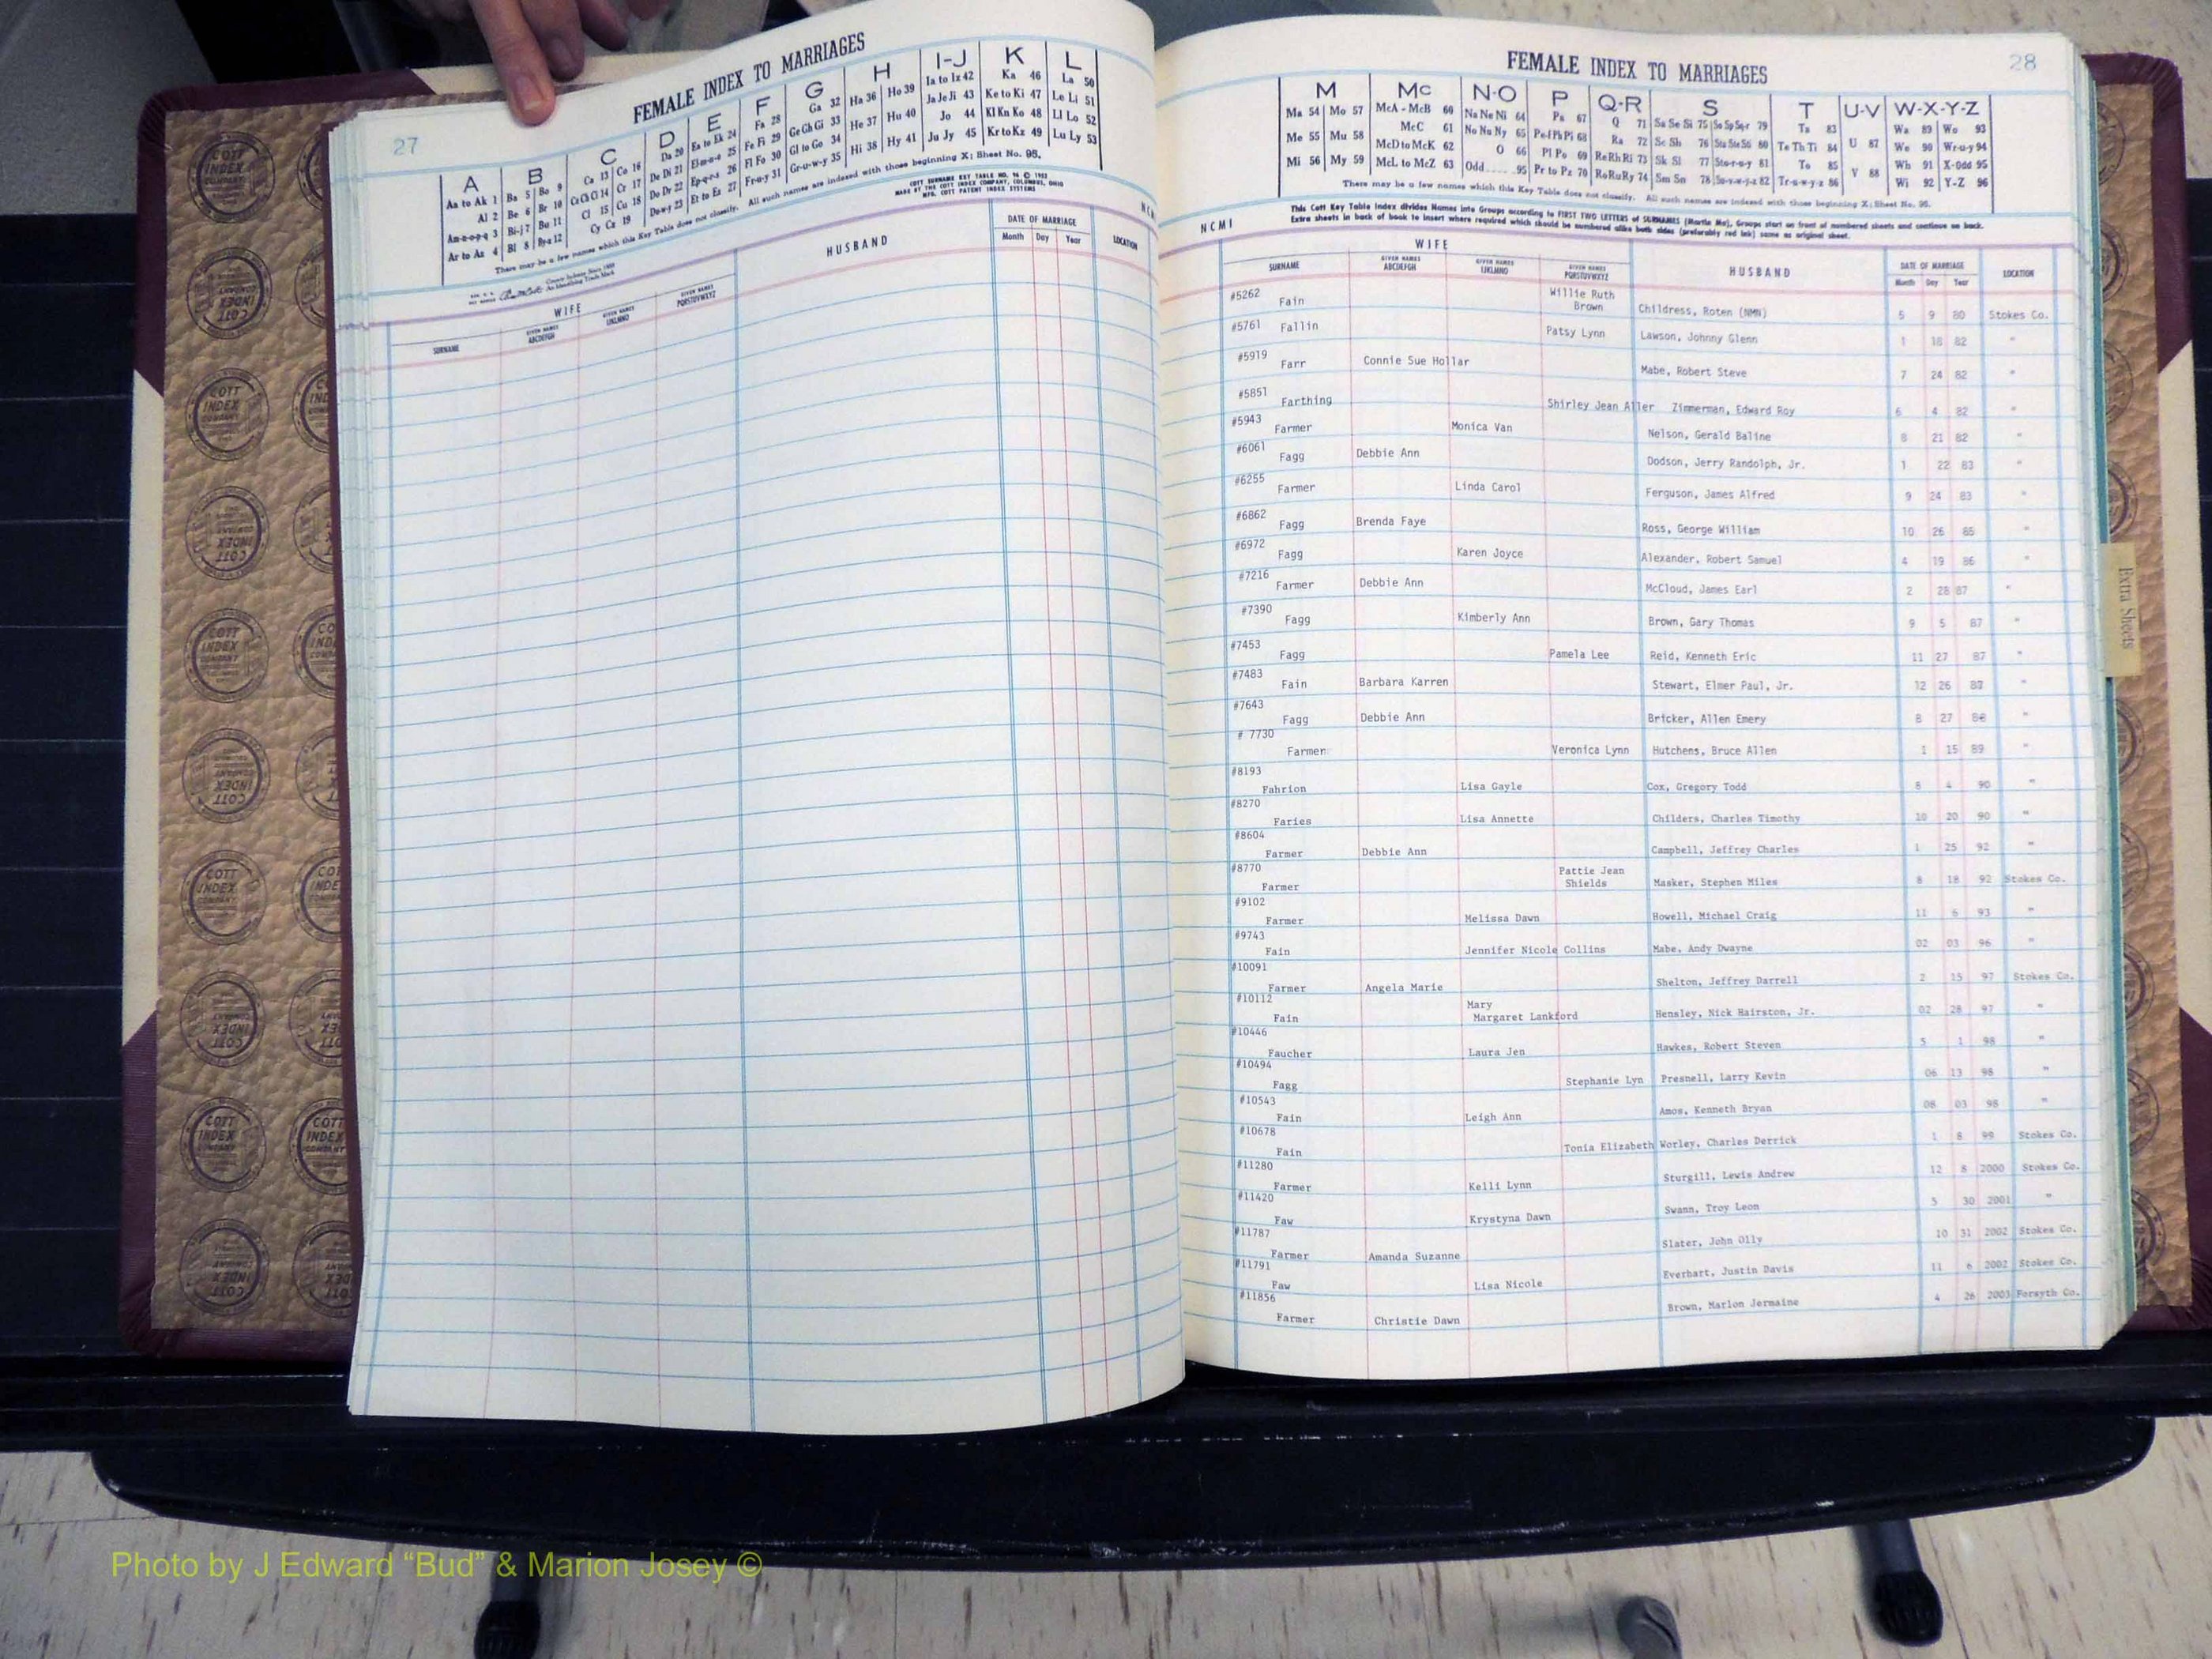 27
FEMALE INDEX TO MARRIAGES
A B C D E F G H I-J K L
Aa to Ak 1 Ba 5 Bo 9 Ca 13 Co 16 Da 20 Ea to Ek 24 Fa 28 Ga 32 Ha 36 Ho 39 Ia to Iz 42 Ka 46 La 50
Al 2 Be 6 Br 10 Ce Ch Ci 14 Cr 17 De Di 21 El-m-n-o 25 Fe Fi 29 Ge Gh Gi 33 He 37 Hu 40 Ja Je Ji 43 Ke to Ki 47 Le Li 51
Am-n-o-p-q 3 Bi-j 7 Bu 11 Cl 15 Cu 18 Do Dr 22 Ep-q-r-s 26 Fl Fo 30 Gl to Go 34 Hi 38 Hy 41 Jo 44 Kl Kn Ko 48 Ll Lo 52
Ar to Az 4 Bl 8 By-z 12 Cy Cz 19 Du-w-y 23 Et to Ez 27 Fr-u-y 31 Gr-u-w-y 35 Ju Jy 45 Kr to Kz 49 Lu Ly 53
There may be a few names which this Key Table does not classify. All such names are indexed with those beginning X; Sheet No. 95.
COTT SURNAME KEY TABLE NO.
MADE BY THE COTT INDEX COMPANY, COLUMBUS, OHIO
MFG. COTT PATENT INDEX SYSTEMS
WIFE HUSBAND DATE OF MARRIAGE LOCATION
SURNAME GIVEN NAMES ABCDEFGH GIVEN NAMES IJKLMNO GIVEN NAMES PQRSTUVWXYZ Month Day Year
FEMALE INDEX TO MARRIAGES
28
M Mc N-O P Q-R S T U-V W-X-Y-Z
Ma 54 Mo 57 McA - McB 60 Na Ne Ni 64 Pa 67 Q 71 Sa Se Si 75 So Sp Sq-r 79 Ta 83 U 87 Wa 89 Wo 93
Me 55 Mu 58 McC 61 No Nu Ny 65 Pe-f Ph Pi 68 Ra 72 Sc Sh 76 Sta Ste Sti 80 Te Th Ti 84 V 88 We 90 Wr-u-y 94
Mi 56 My 59 McD to McK 62 O 66 Pl Po 69 Re Rh Ri 73 Sk Sl 77 Sto-r-u-y 81 To 85 Wh 91 X-Odd 95
McL to McZ 63 Odd 95 Pr to Pz 70 Ro Ru Ry 74 Sm Sn 78 Su-v-w-y-z 82 Tr-u-w-y-z 86 Wi 92 Y-Z 96
There may be a few names which this Key Table does not classify. All such names are indexed with those beginning X; Sheet No. 95.
NCMI
This Cott Key Table Index divides Names into Groups according to FIRST TWO LETTERS of SURNAMES (Martin Ma), Groups start on front of numbered sheets and continue on back.
Extra sheets in back of book to insert where required which should be numbered alike both sides (preferably red ink) same as original sheet.
WIFE HUSBAND DATE OF MARRIAGE LOCATION
SURNAME GIVEN NAMES ABCDEFGH GIVEN NAMES IJKLMNO GIVEN NAMES PQRSTUVWXYZ Month Day Year
#5262 Fain Willie Ruth Brown Childress, Roten (NMN) 5 9 80 Stokes Co.
#5761 Fallin Patsy Lynn Lawson, Johnny Glenn 1 18 82 "
#5919 Farr Connie Sue Hollar Mabe, Robert Steve 7 24 82 "
#5851 Farthing Shirley Jean Zimmerman, Edward Roy 6 4 82 "
#5943 Farmer Monica Van Nelson, Gerald Baline 8 21 82 "
#6061 Fagg Debbie Ann Dodson, Jerry Randolph, Jr. 1 22 83 "
#6255 Farmer Linda Carol Ferguson, James Alfred 9 24 83 "
#6862 Fagg Brenda Faye Ross, George William 10 26 85 "
#6972 Fagg Karen Joyce Alexander, Robert Samuel 4 19 86 "
#7216 Farmer Debbie Ann McCloud, James Earl 2 28 87 "
#7390 Fagg Kimberly Ann Brown, Gary Thomas 9 5 87 "
#7453 Fagg Pamela Lee Reid, Kenneth Eric 11 27 87 "
#7483 Fain Barbara Karren Stewart, Elmer Paul, Jr. 12 26 87 "
#7643 Fagg Debbie Ann Bricker, Allen Emery 8 27 88 "
# 7730 Farmer Veronica Lynn Hutchens, Bruce Allen 1 15 89 "
#8193 Fahrion Lisa Gayle Cox, Gregory Todd 8 4 90 "
#8270 Faries Lisa Annette Childers, Charles Timothy 10 20 90 "
#8604 Farmer Debbie Ann Campbell, Jeffrey Charles 1 25 92 "
#8770 Farmer Pattie Jean Shields Masker, Stephen Miles 8 18 92 Stokes Co.
#9102 Farmer Melissa Dawn Howell, Michael Craig 11 6 93 "
#9743 Fain Jennifer Nicole Collins Mabe, Andy Dwayne 02 03 96 "
#10091 Farmer Angela Marie Shelton, Jeffrey Darrell 2 15 97 Stokes Co.
#10112 Fain Mary Margaret Lankford Hensley, Nick Hairston, Jr. 02 28 97 "
#10446 Faucher Laura Jen Hawkes, Robert Steven 5 1 98 "
#10494 Fagg Stephanie Lyn Presnell, Larry Kevin 06 13 98 "
#10543 Fain Leigh Ann Amos, Kenneth Bryan 08 03 98 "
#10678 Fain Tonia Elizabeth Worley, Charles Derrick 1 8 99 Stokes Co.
#11280 Farmer Kelli Lynn Sturgill, Lewis Andrew 12 8 2000 Stokes Co.
#11420 Faw Krystyna Dawn Swann, Troy Leon 5 30 2001 "
#11787 Farmer Amanda Suzanne Slater, John Olly 10 31 2002 Stokes Co.
#11791 Faw Lisa Nicole Everhart, Justin Davis 11 6 2002 Stokes Co.
#11856 Farmer Christie Dawn Brown, Marlon Jermaine 4 26 2003 Forsyth Co.
Extra Sheets
COTT INDEX COMPANY
Photo by J Edward “Bud” & Marion Josey ©